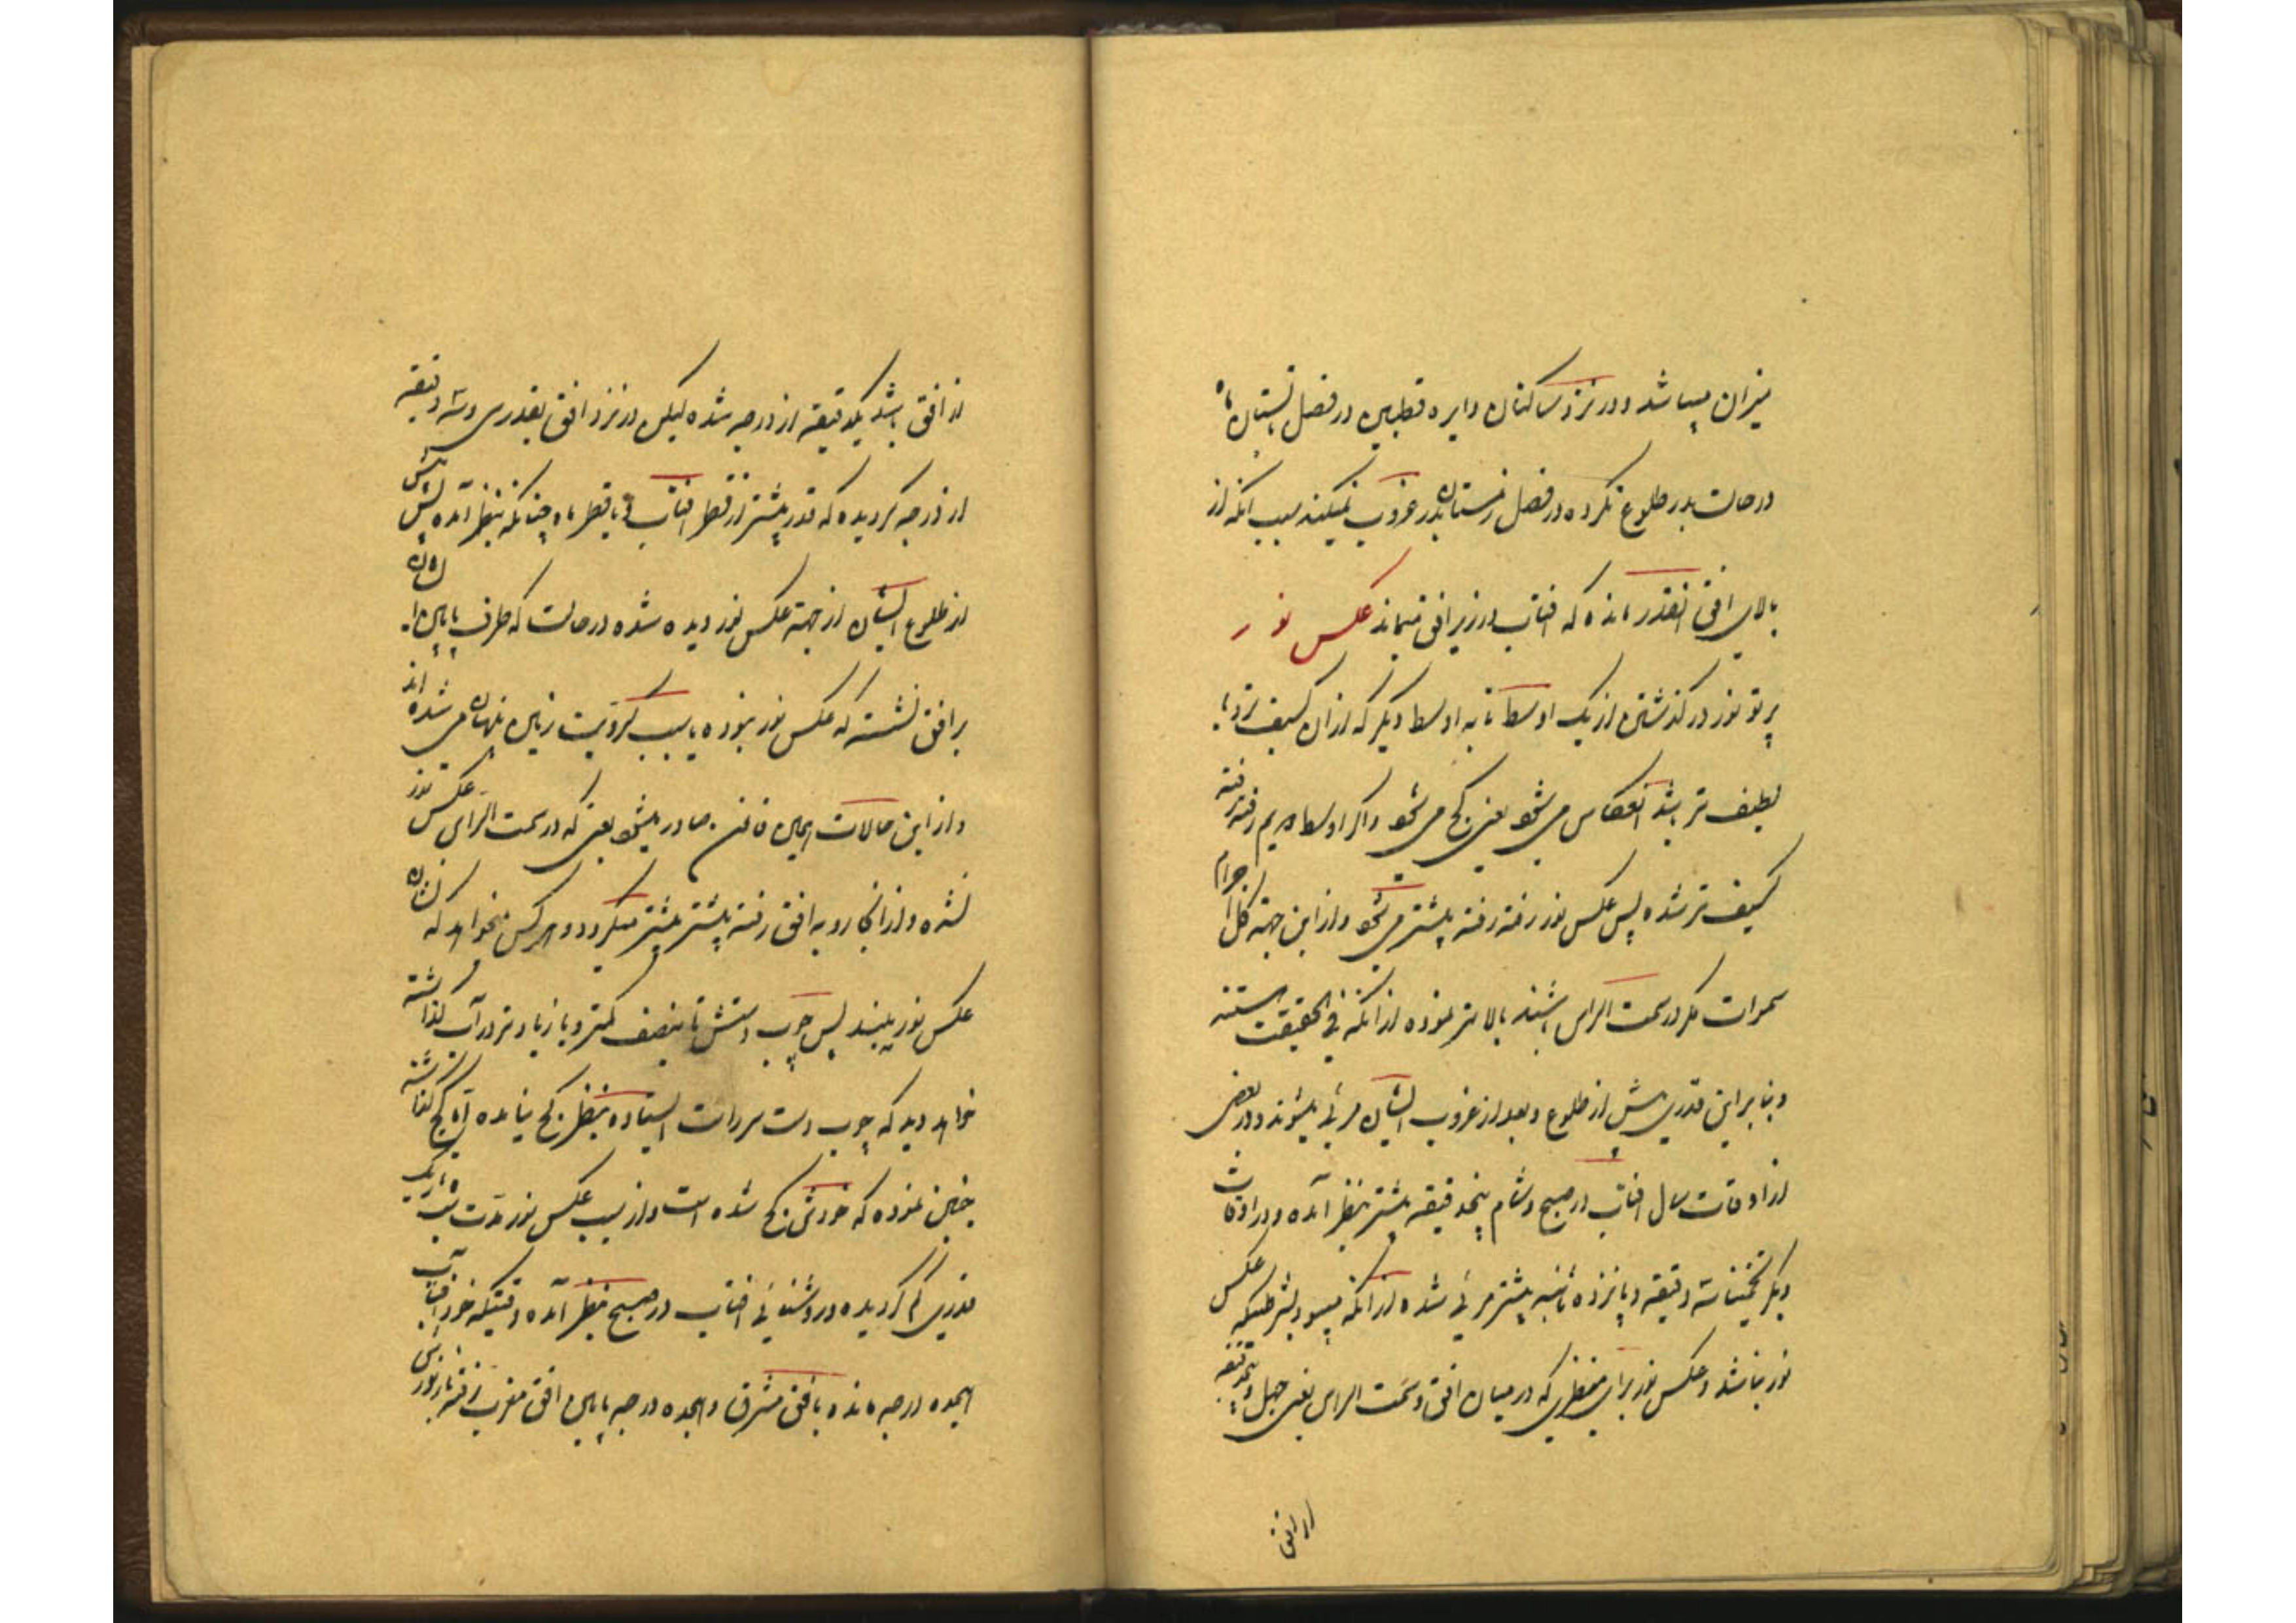 میزان میباشد و در نزد ساکنان دایره قطبین در فصل تابستان ماه
در حالت بدر طلوع نکرده در فصل زمستان بدر غروب نمیکند بسبب آنکه از
بالای افق آنقدر مانده که افتاب در زیر افق میماند عکس نور
پرتو نور در گذشتن از یک اوسط تا به اوسط دیگر که از آن کسیف تر و یا
لطیف تر باشد انعکاس می شود یعنی کج می شود و اگر اوسط دویم رفته رفته
کسیف تر شده پس عکس نور رفته رفته بیشتر می شود و از این جهة کل اجرام
سموات مگر در سمت الراس باشند بالاتر نموده از آنکه فی الحقیقت هستند
و بنا بر این قدری پیش از طلوع و بعد از غروب ایشان مرئی میشوند و در بعضی
از اوقات سال افتاب در صبح و شام پنجدقیقه بیشتر بنظر آمده و در اوقات
دیگر تخمیناً سه دقیقه و پانزده ثانیه بیشتر مرئی شده از آنکه میبود بشرطیکه عکس
نور نباشد و عکس نور برای منظری که در میان افق و سمت الراس یعنی چهل و پنجدقیقه
از افق
از افق باشد یکدقیقه از درجه شده لیکن در نزد افق بقدری و سه دقیقه
از درجه گردیده که قدر بیشتر از قطر افتاب و یا قطر ماه چنانکه بنظر آمده پس پیش
از طلوع ایشان از جهة عکس نور دیده شده در حالت که طرف پایین ایشان
بر افق نشسته که عکس نور نبوده بسبب کرویت زمین پنهان می شده اند
و از این حالات همین قانون صادر میشود یعنی که در سمت الرأی عکس نور
نشده و از آنجا رو به افق رفته بیشتر بیشتر میگردد و هر کس میخواهد که نشان
عکس نور به بیند پس چوب دستش تا بنصف کمتر و یا زیادتر در آب گذاشته
خواهد دید که چوب دست سر راست ایستاده بنظر کج نیامده اما کج گذاشته
چنین نموده که خودش کج شده است و از سبب عکس نور مدت شب تاریک
قدری کم گردیده و روشنائی افتاب در صبح بنظر آمده وقتیکه خود افتاب
هیجده درجه مانده بافق مشرق و هیجده درجه پایین افق مغرب رفته باز نورش